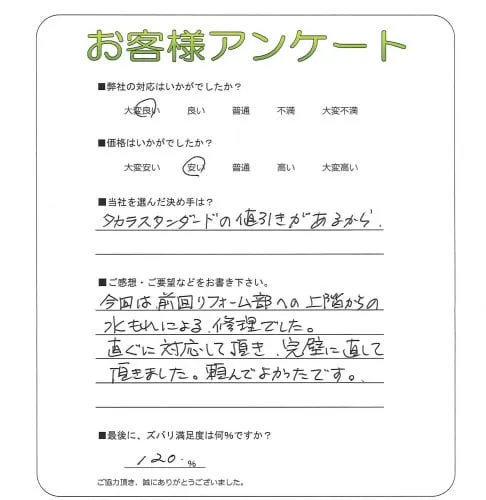 お客様アンケート
■弊社の対応はいかがでしたか？
大変良い 良い 普通 不満 大変不満
■価格はいかがでしたか？
大変安い 安い 普通 高い 大変高い
■当社を選んだ決め手は？
タカラスタンダードの値引きがあるから、
■ご感想・ご要望などをお書き下さい。
今回は、前回リフォーム部への上階からの
水もれによる、修理でした。
直ぐに対応して頂き、完璧に直して
頂きました。頼んでよかったです。
■最後に、ズバリ満足度は何％ですか？
120 %
ご協力頂き、誠にありがとうございました。